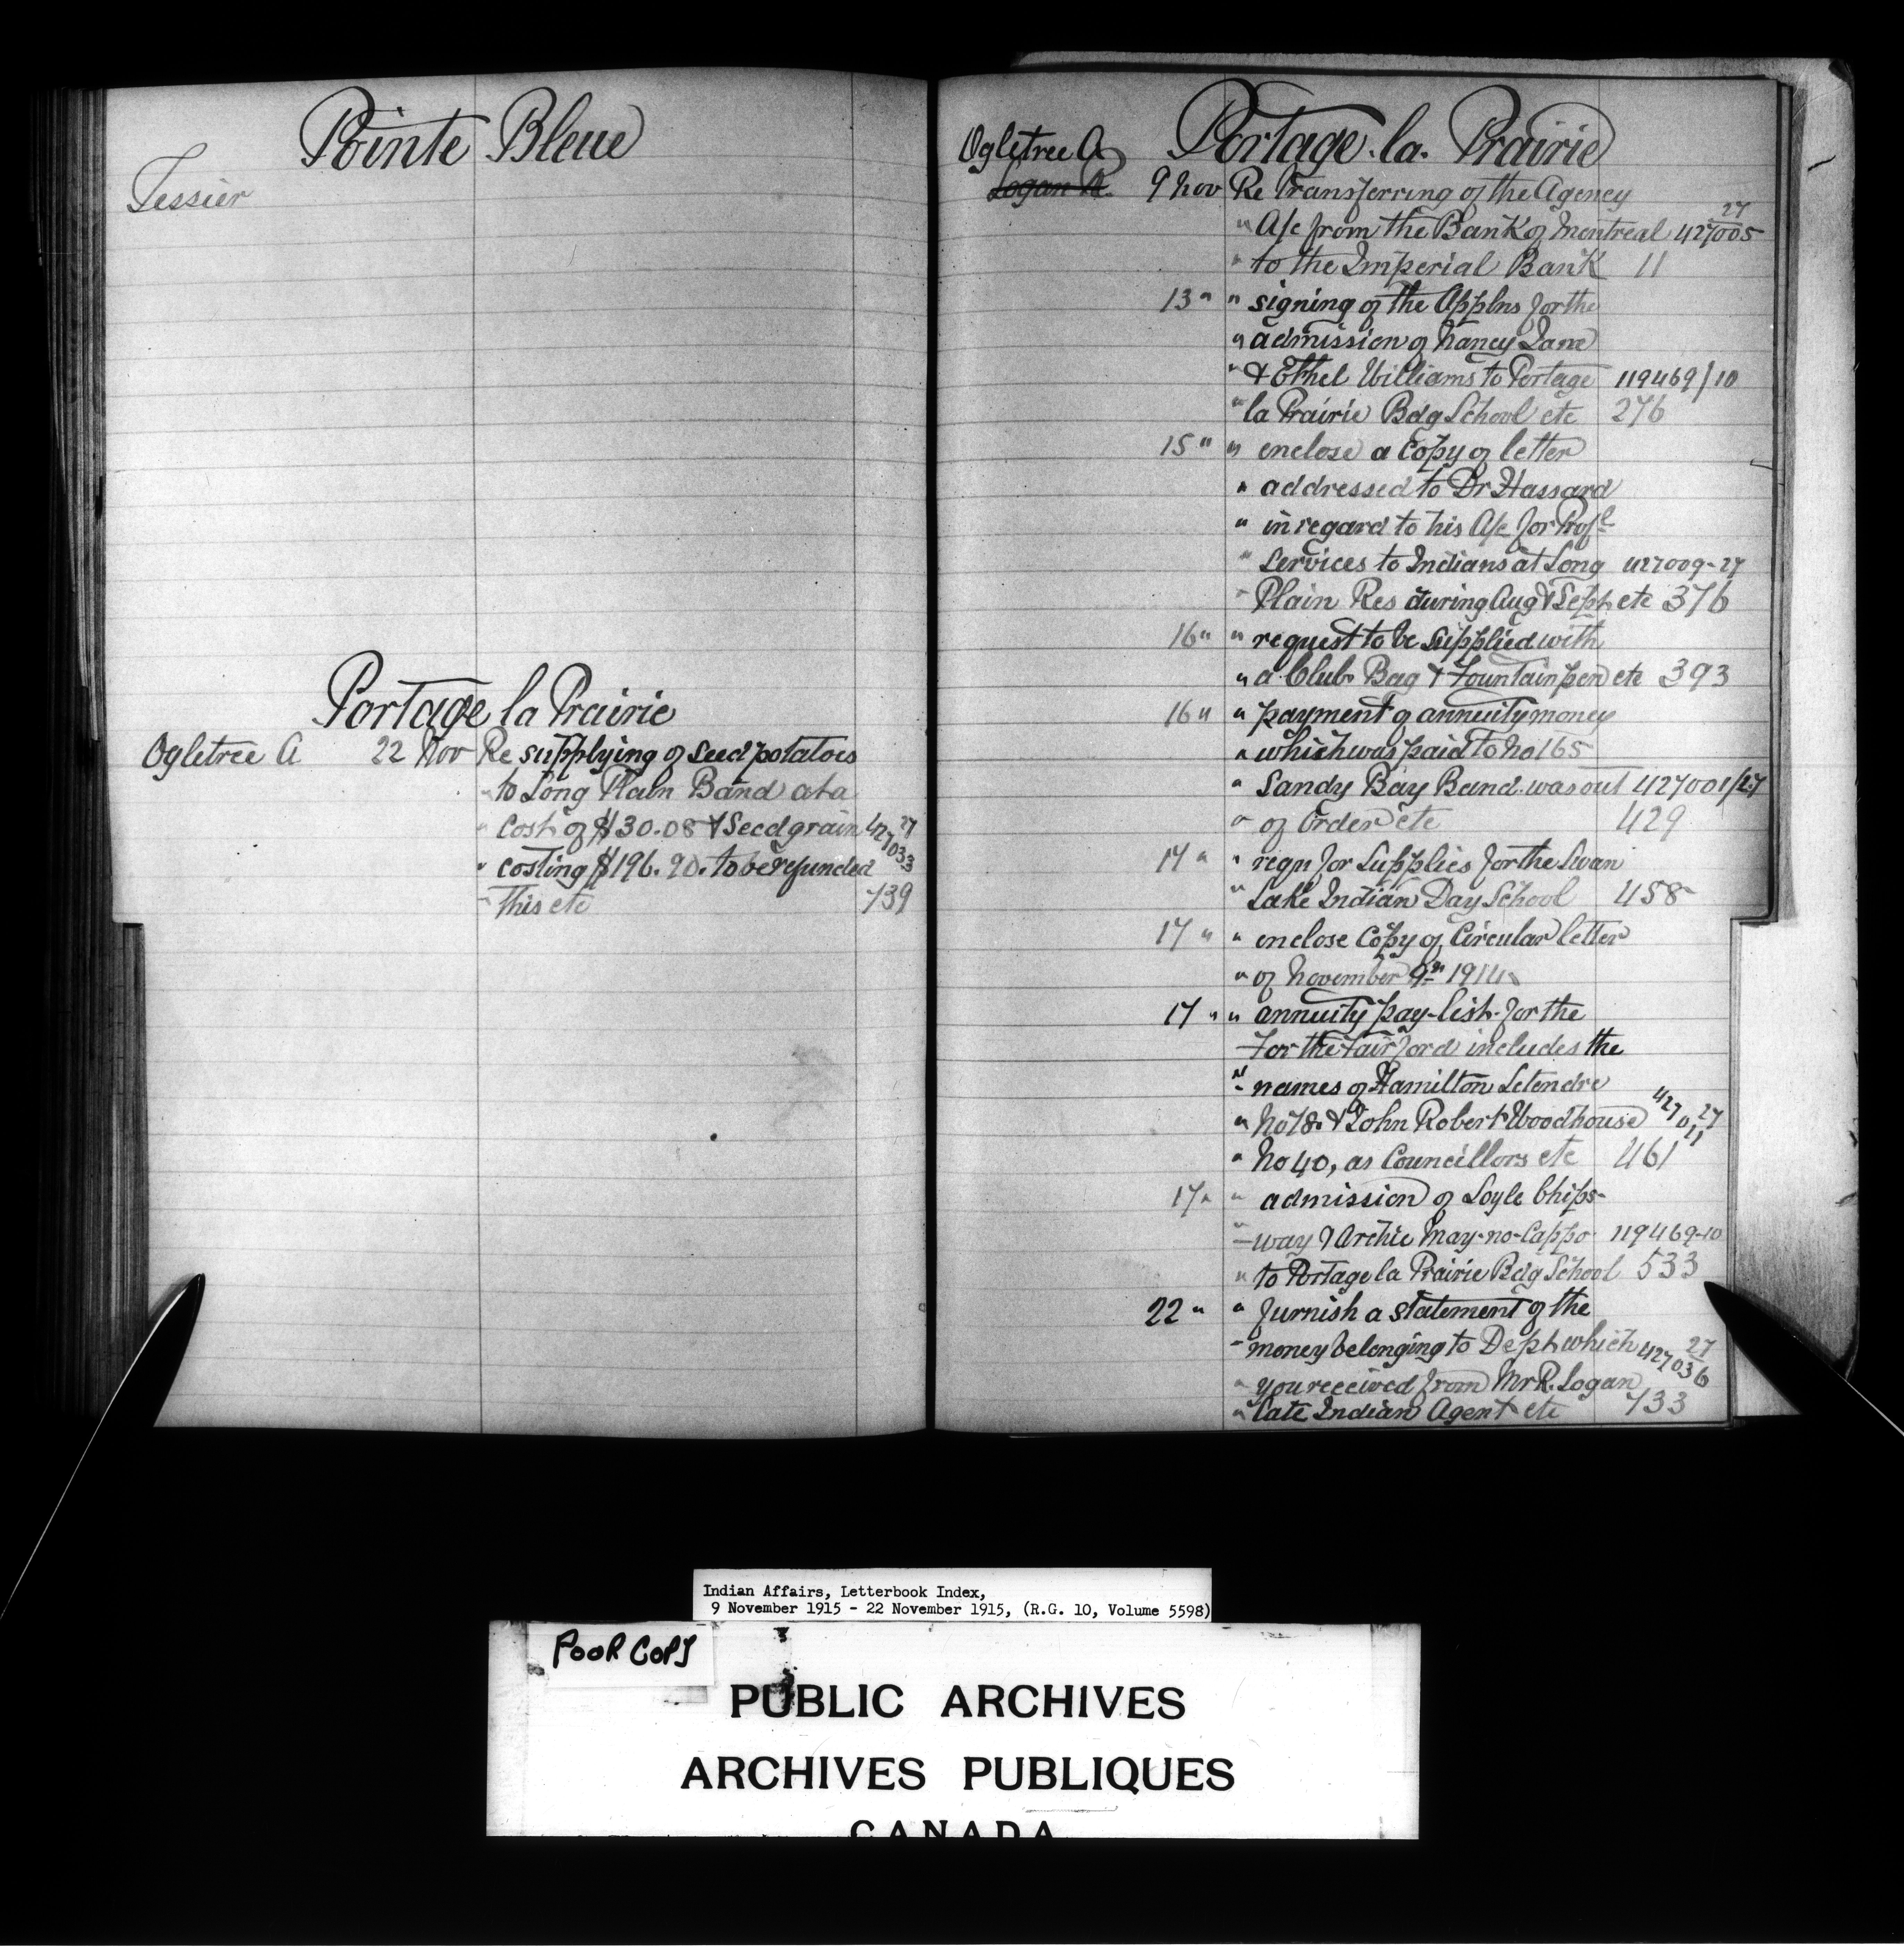 Pointe Bleue
Tessier
Portage la Prairie
Ogletree A 22 Nov Re supplying of seed potatoes
" to Long Plain Band at a
" cost of $30.08 & Seed grain 427033 27
" costing $196.90. to be refunded
" This etc 739
Ogletree A Portage la Prairie
Logan R. 9 Nov Re Transferring of the Agency
" A/c from the Bank of Montreal 427005 27
" to the Imperial Bank 11
13 " " signing of the Applns for the
" admission of Nancy Jane
" & Ethel Williams to Portage 119469/10
" la Prairie Bdg School etc 276
15 " " enclose a Copy of letter
" addressed to Dr Hassard
" in regard to his A/c for Profl
" Services to Indians at Long 427009-27
" Plain Res during Aug & Sept etc 376
16 " " request to be supplied with
" a Club Bag & Fountain pen etc 393
16 " " payment of annuity money
" which was paid to No 165
" Sandy Bay Band was out 427001/27
" of Order etc 429
17 " " reqn for Supplies for the Swan
" Lake Indian Day School 458
17 " " enclose Copy of Circular letter
" of November 9th 1914
17 " " annuity pay-list for the
For the Fairford includes the
" names of Hamilton Letendre
" No 18 & John Robert Woodhouse 427011 27
" No 40, as Councillors etc 461
17 " " admission of Loyle Chips-
" -way & Archie May-no-Cappo 119469-10
" to Portage la Prairie Bdg School 533
22 " " furnish a statement of the
" money belonging to Dept which 427036 27
" you received from Mr R. Logan
" late Indian Agent etc 733
Indian Affairs, Letterbook Index,
9 November 1915 - 22 November 1915, (R.G. 10, Volume 5598)
POOR COPY
PUBLIC ARCHIVES
ARCHIVES PUBLIQUES
CANADA